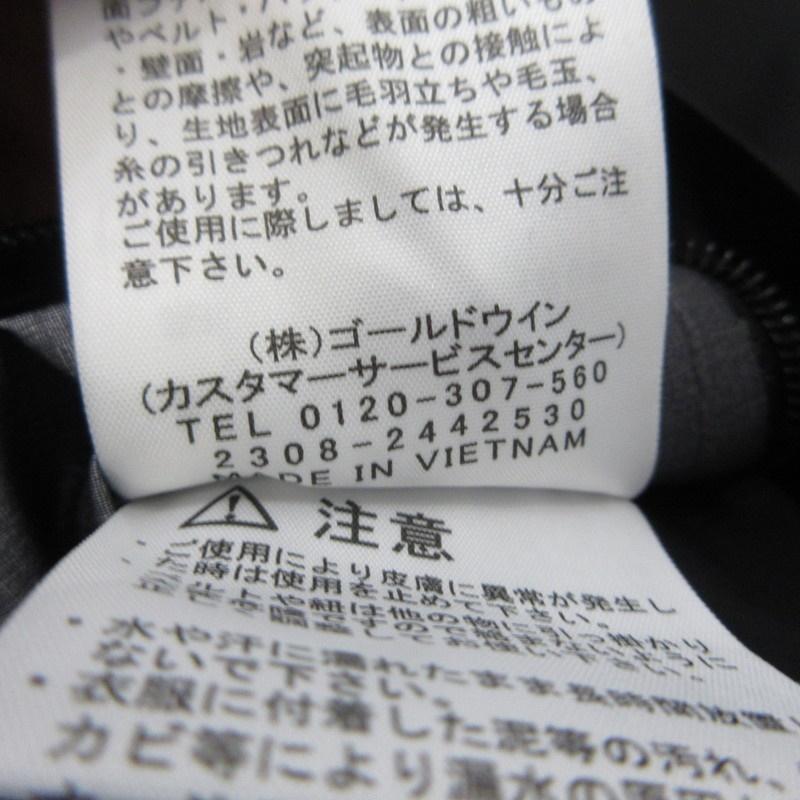 やベルト・
・壁面・岩など、表面の粗いもの
との摩擦や、突起物との接触によ
り、生地表面に毛羽立ちや毛玉、
糸の引きつれなどが発生する場合
があります。
ご使用に際しましては、十分ご注
意下さい。
(株)ゴールドウイン
(カスタマーサービスセンター)
TEL 0120-307-560
2308-2442530
MADE IN VIETNAM
注意
・ご使用により皮膚に異常が発生し
た時は使用を止めて下さい。
や紐は他の物に引っ掛かり
・水や汗に濡れたまま長時間放置
ないで下さい。
・衣服に付着した泥等の汚れ、
カビ等により漏水の原因